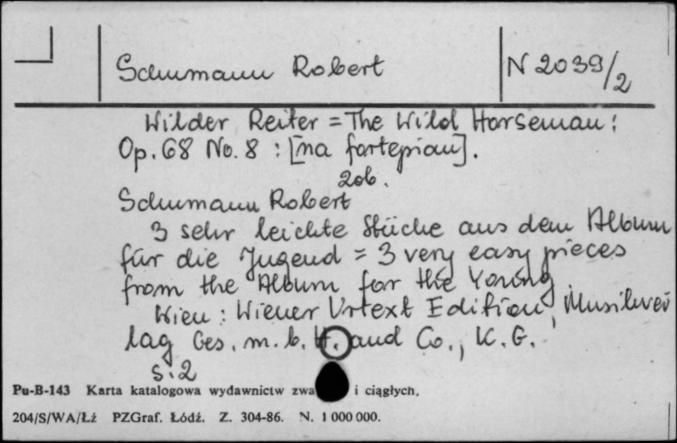 Schumann Robert
N 2039/2
Wilder Reiter = The Wild Horseman :
Op. 68 No. 8 : [na fortepian].
Zob.
Schumann Robert
3 sehr leichte Stücke aus dem Album
für die Jugend = 3 very easy pieces
from the Album for the Young.
Wien : Wiener Urtext Edition, Musikver
lag Ges. m. b. H. and Co., K. G.
s. 2
Pu-B-143 Karta katalogowa wydawnictw zwa i ciągłych.
204/S/WA/Łż PZGraf. Łódź. Z. 304-86. N. 1 000 000.